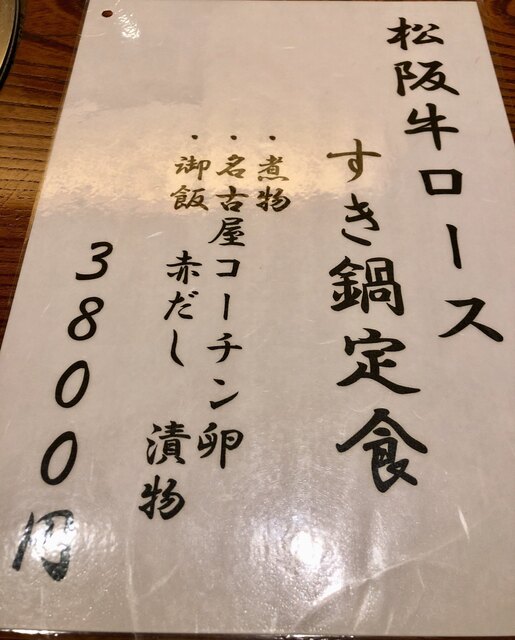 松阪牛ロース
すき鍋定食
・煮物
・名古屋コーチン卵
・御飯 赤だし 漬物
3800円